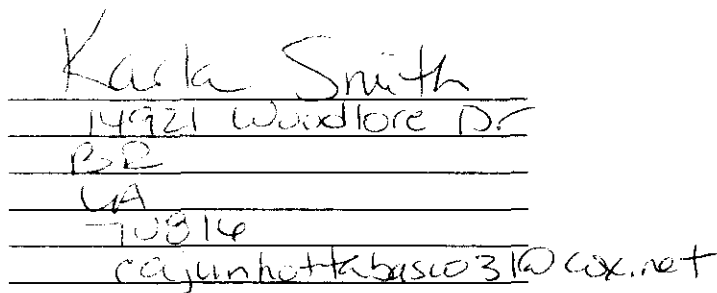 Karla Smith
14921 Woodlore Dr
BR
LA
70816
cajunhottabasco31@cox.net